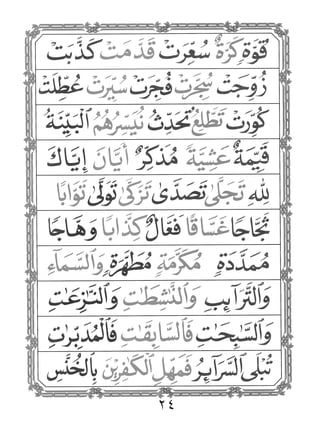 قُوَّةٍ كَرَّةٌ سُعِّرَتْ قَدَّمَتْ كَذَّبَتْ
زُوِّجَتْ سُجِّرَتْ فُجِّرَتْ سُيِّرَتْ عُطِّلَتْ
كُوِّرَتْ تَطَّلِعُ تُحَدِّثُ نُيَسِّرُهُمُ الْبَيِّنَةُ
قَيِّمَةٌ عَشِيَّةً مُذَكِّرٌ أَيَّانَ إِيَّاكَ
لِلّٰهِ تَجَلّٰى تَصَدّٰى تَزَكّٰى تَوَلّٰى تَوَّابًا
ثَجَّاجًا غَسَّاقًا فَعَّالٌ كِذَّابًا وَهَّاجًا
مُمَدَّدَةٍ مُكَرَّمَةٍ مُطَهَّرَةٍ وَالسَّمَآءِ
وَالتَّرَآئِبِ وَالنّٰشِطٰتِ وَالنّٰزِعٰتِ
وَالسّٰبِحٰتِ فَالسّٰبِقٰتِ فَالْمُدَبِّرٰتِ
تُبْلَى السَّرَآئِرُ فَمَهِّلِ الْكٰفِرِيْنَ بِالْخُنَّسِ
٢٤